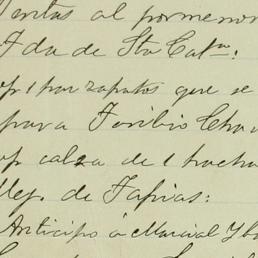 Ventas al pormenor
Ada de Sta Catna:
op 1 par zapatos que se
para Toribio Cha
op calza de 1 hacha
Mej. de Tapias:
Anticipo á Marcial Yba